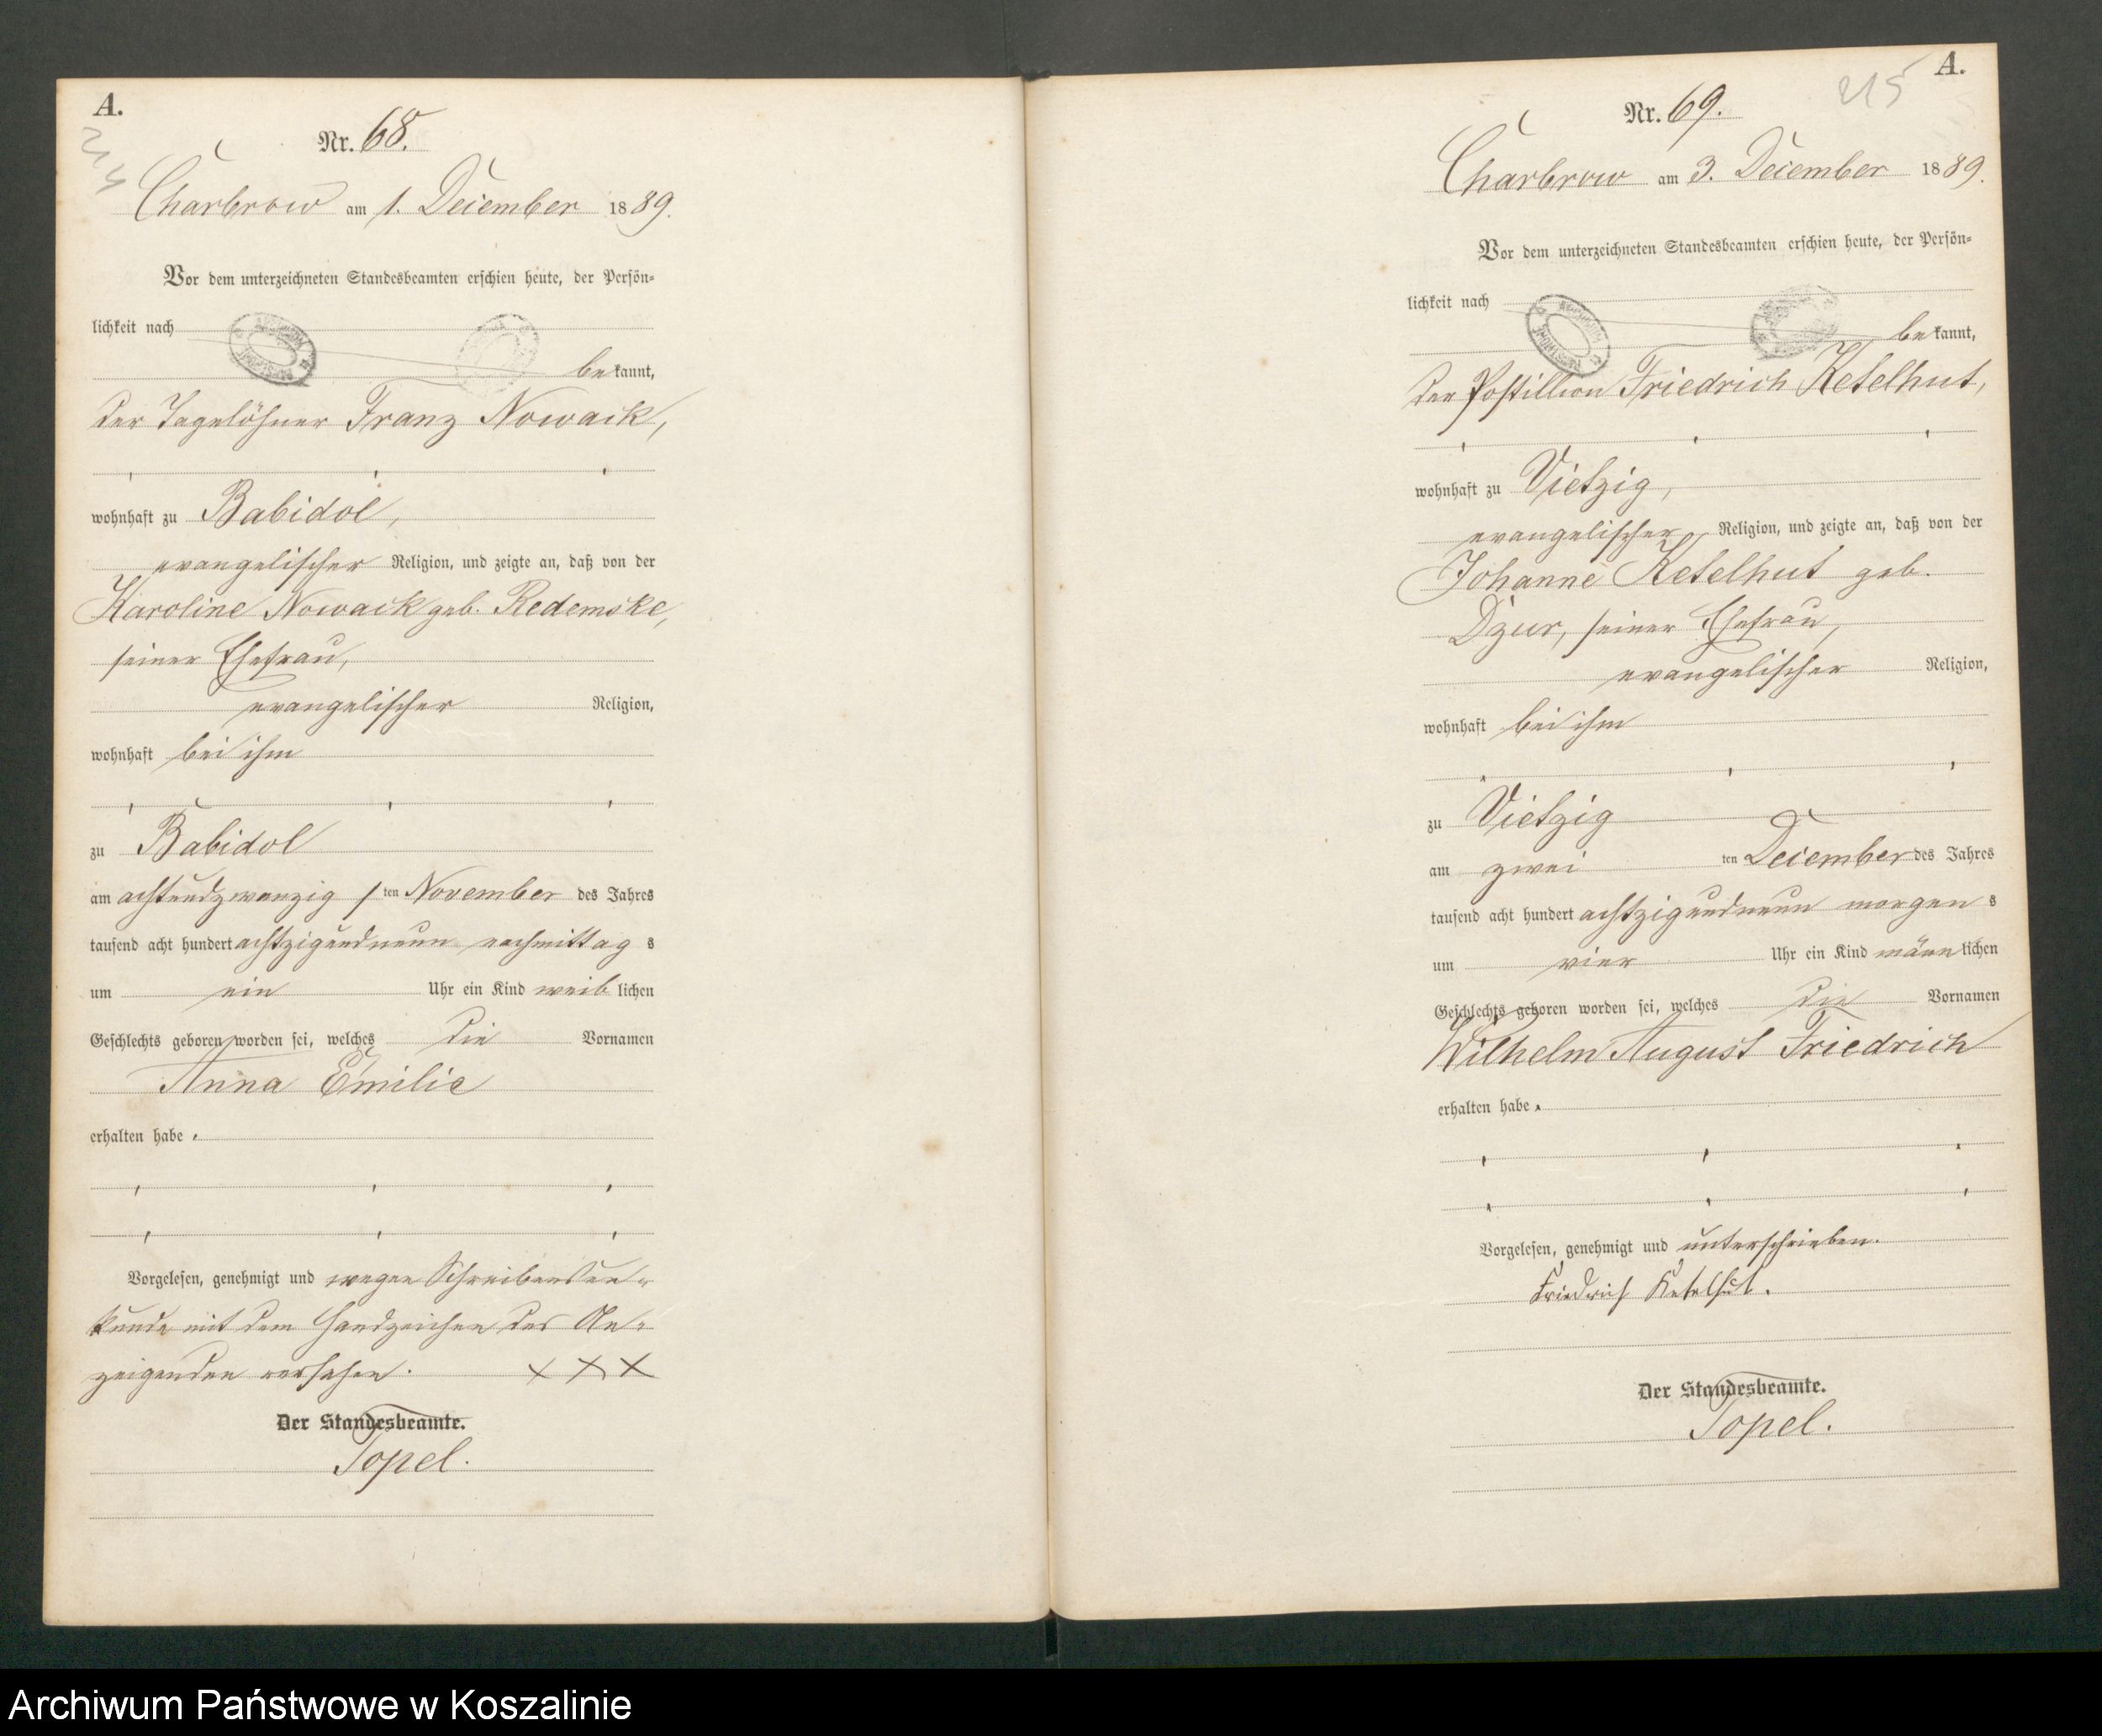 A.
Nr. 68.
Charbrow am 1. December 1889.
Vor dem unterzeichneten Standesbeamten erschien heute, der Persön-
lichkeit nach
bekannt,
der Tagelöhner Franz Nowack,
wohnhaft zu Babidol,
evangelischer Religion, und zeigte an, daß von der
Karoline Nowack geb. Redemske,
seiner Ehefrau,
evangelischer Religion,
wohnhaft bei ihm
zu Babidol
am achtundzwanzigsten November des Jahres
tausend acht hundert achtzigundneun nachmittags
um ein Uhr ein Kind weiblichen
Geschlechts geboren worden sei, welches die Vornamen
Anna Emilie
erhalten habe.
Vorgelesen, genehmigt und wegen Schreibensun-
kunde mit dem Handzeichen des An-
zeigenden versehen. XXX
Der Standesbeamte.
Topel.
A.
215
Nr. 69.
Charbrow am 3. December 1889.
Vor dem unterzeichneten Standesbeamten erschien heute, der Persön-
lichkeit nach
bekannt,
der Postillion Friedrich Ketelhut,
wohnhaft zu Vietzig,
evangelischer Religion, und zeigte an, daß von der
Johanne Ketelhut geb.
Dzur, seiner Ehefrau,
evangelischer Religion,
wohnhaft bei ihm
zu Vietzig
am zwei ten December des Jahres
tausend acht hundert achtzigundneun morgens
um vier Uhr ein Kind männlichen
Geschlechts geboren worden sei, welches die Vornamen
Wilhelm August Friedrich
erhalten habe.
Vorgelesen, genehmigt und unterschrieben.
Friedrich Ketelhut.
Der Standesbeamte.
Topel.
Archiwum Państwowe w Koszalinie